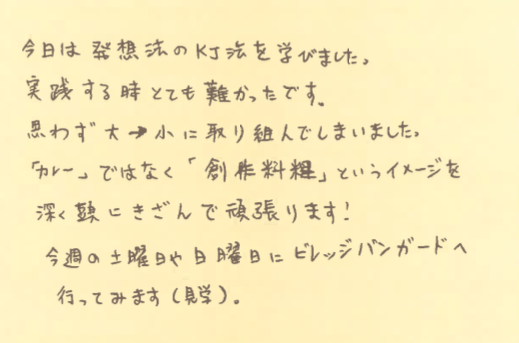 今日は発想法のKJ法を学びました。
実践する時とても難かったです。
思わず大→小に取り組んでしまいました。
「カレー」ではなく「創作料理」というイメージを
深く頭にきざんで頑張ります!
今週の土曜日や日曜日にビレッジバンガードへ
行ってみます(見学)。